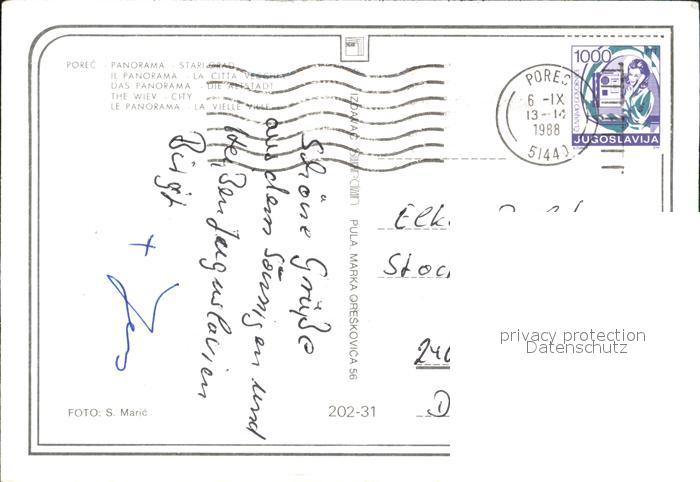 POREČ - PANORAMA - STARI GRAD
IL PANORAMA - LA CITTA VECCHIA
DAS PANORAMA - DIE ALTSTADT
THE WIEV - CITY
LE PANORAMA - LA VIELLE VILLE
POREČ
6 -IX
13-14
1988
51440
1000
JUGOSLAVIJA
Schöne Grüße
aus dem sonnigen und
heißen Jugoslavien
Birgit
+ Jens
IZDAVAČ
PULA, MARKA OREŠKOVIĆA 56
Elke
Stoc
240
D
privacy protection
Datenschutz
FOTO: S. Marić
202-31